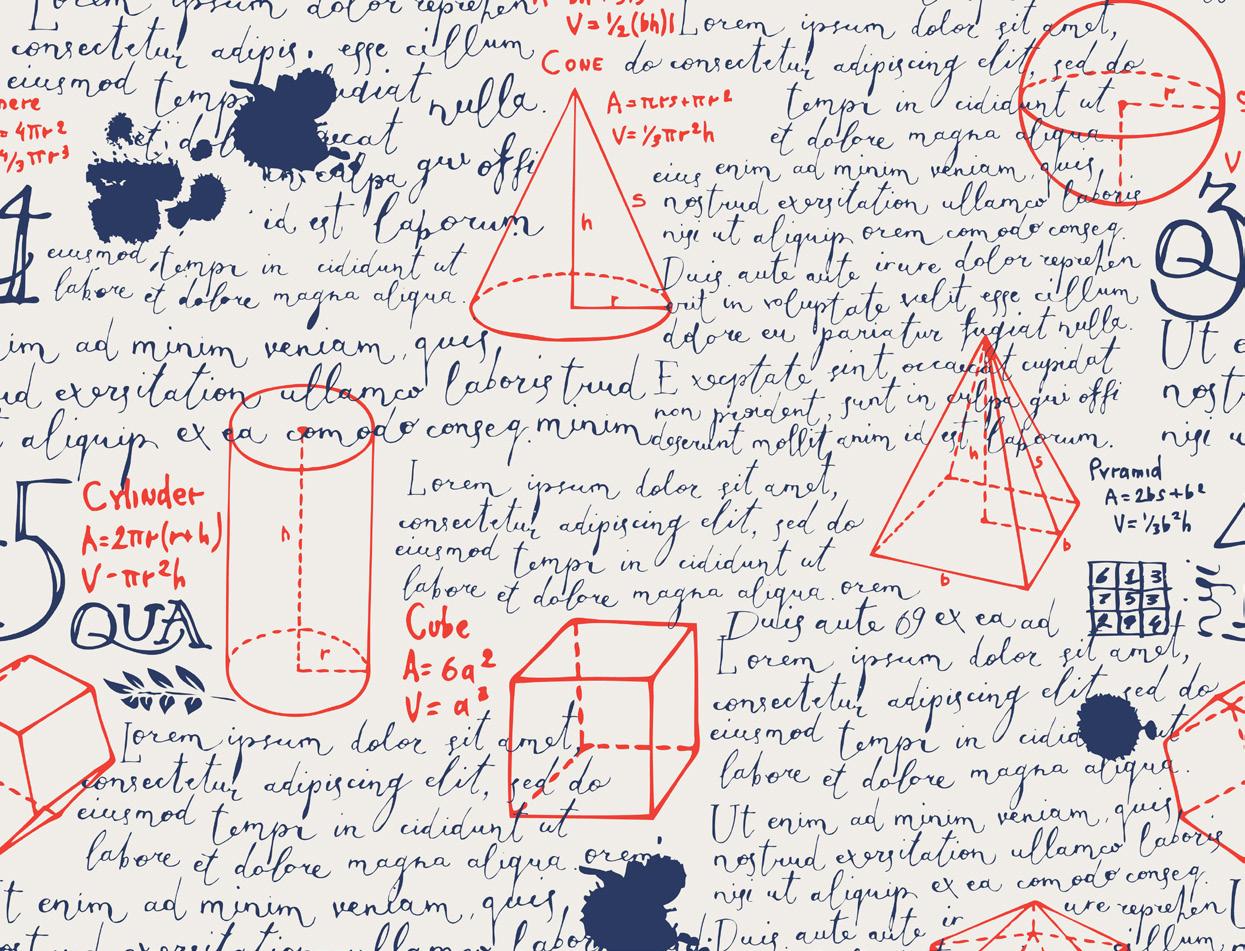 Lorem ipsum dolor reprehen
consectetur adipis. esse cillum
eiusmod nulla.
id est laborum
4
eiusmod tempr in cididunt ut
labore et dolore magna aliqua.
im ad minim veniam, quis
ud exersitation ullamco laboris trud
t aliquip ex ea comodo conseq. minim
V = 1/2(bh)l
CONE
A = πrs+πr²
V = 1/3πr²h
h
s
r
= 4πr²
4/3πr³
Lorem ipsum dolor sit amet,
do consectetur adipiscing elit, sed do
tempr in cididunt ut
et dolore magna aliqua.
eius enim ad minim veniam, quis
nostrud exersitation ullamco laboris
nisi ut aliquip orem comodo conseq.
Duis aute aute irure dolor reprehen
erit in voluptate velit esse cillum
dolore eu pariatur fugiat nulla.
Exceptate sint occaecat cupidat
non proident, sunt in culpa qui offi
deserunt mollit anim id est laborum.
r
V
Q3
Ut e
nostr
nisi u
5
Cylinder
A=2πr(r+h)
V-πr²h
h
r
QUA
Lorem ipsum dolor sit amet,
consectetur adipiscing elit, sed do
eiusmod tempr in cididunt ut
labore et dolore magna aliqua. orem
h
s
b
b
Pyramid
A=2bs+b²
V=1/3b²h
6 1 3
7 5 3
2 9 4
Cube
A= 6a²
V= a³
Duis aute 69 ex ea ad
Lorem ipsum dolor sit amet,
consectetur adipiscing elit, sed do
eiusmod tempr in cidid ut
labore et dolore magna aliqua.
Ut enim ad minim veniam, quis
nostrud exersitation ullamco laboris
nisi ut aliquip ex ea comodo conseq.
Duis aute aute ir ure reprehen
Lorem ipsum dolor sit amet,
consectetur adipiscing elit, sed do
eiusmod tempr in cididunt ut
labore et dolore magna aliqua. orem
t enim ad minim veniam, quis